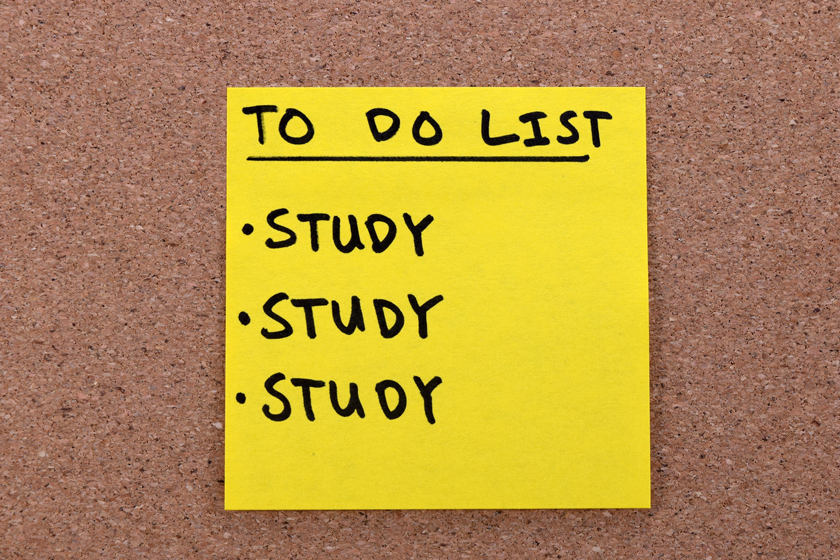 TO DO LIST
• STUDY
• STUDY
• STUDY